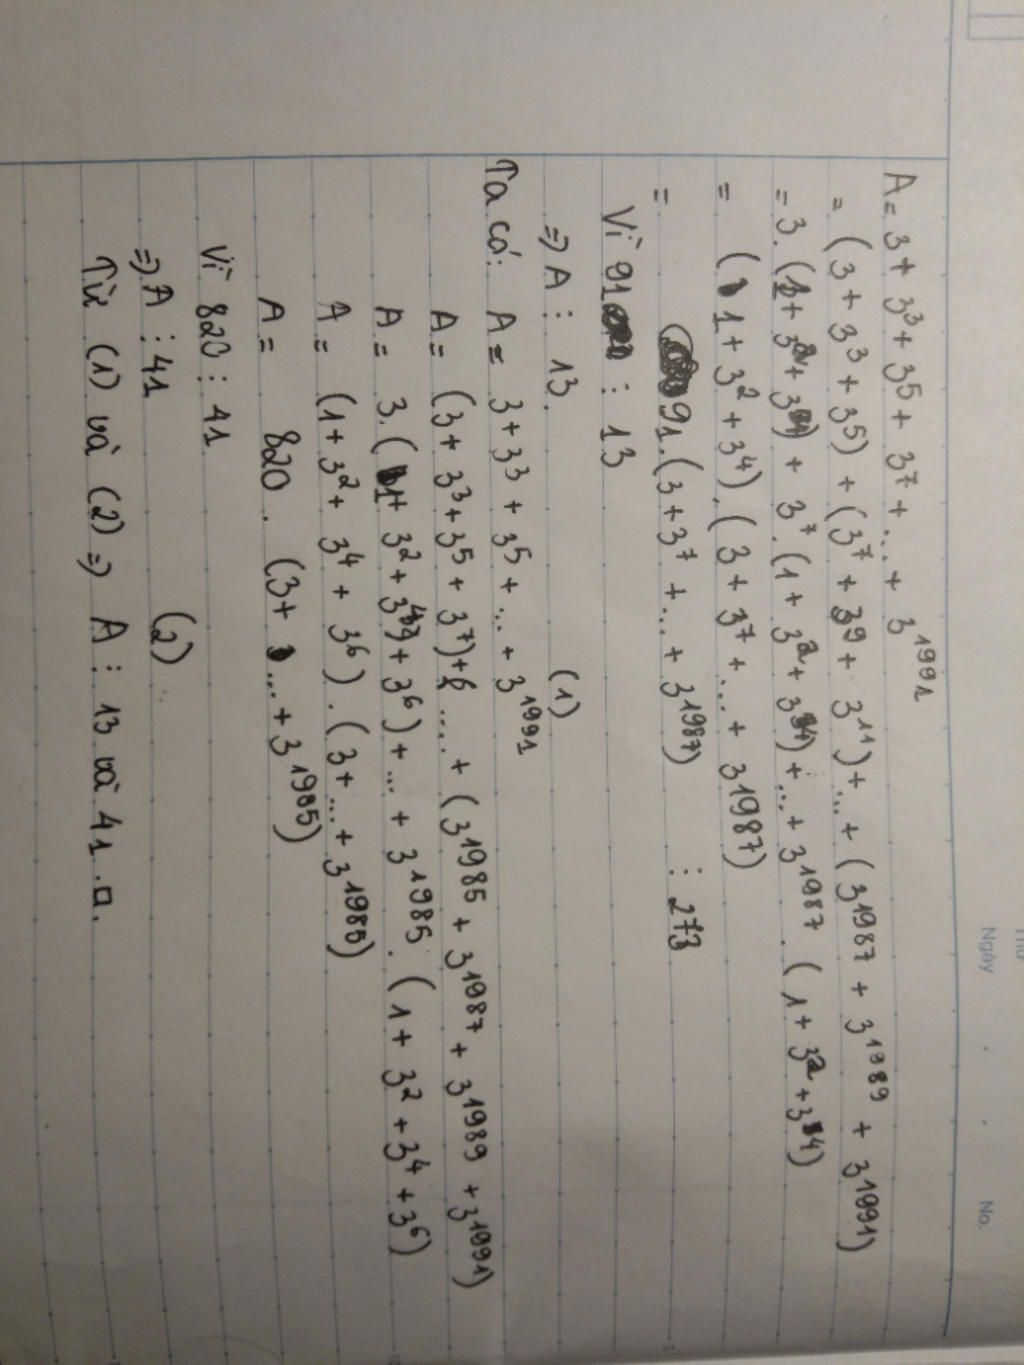 Thứ
Ngày . . No.
A = 3 + 3³ + 3⁵ + 3⁷ + ... + 3¹⁹⁹¹
= (3 + 3³ + 3⁵) + (3⁷ + 3⁹ + 3¹¹) + ... + (3¹⁹⁸⁷ + 3¹⁹⁸⁹ + 3¹⁹⁹¹)
= 3. (1 + 3² + 3⁴) + 3⁷. (1 + 3² + 3⁴) + ... + 3¹⁹⁸⁷. (1 + 3² + 3⁴)
= (1 + 3² + 3⁴). (3 + 3⁷ + ... + 3¹⁹⁸⁷)
= 91. (3 + 3⁷ + ... + 3¹⁹⁸⁷) ⋮ 273
Vì 91 ⋮ 13
=> A ⋮ 13. (1)
Ta có: A = 3 + 3³ + 3⁵ + ... + 3¹⁹⁹¹
A = (3 + 3³ + 3⁵ + 3⁷) + .... + (3¹⁹⁸⁵ + 3¹⁹⁸⁷ + 3¹⁹⁸⁹ + 3¹⁹⁹¹)
A = 3. (1 + 3² + 3⁴ + 3⁶) + ... + 3¹⁹⁸⁵. (1 + 3² + 3⁴ + 3⁶)
A = (1 + 3² + 3⁴ + 3⁶). (3 + ... + 3¹⁹⁸⁵)
A = 820. (3 + ... + 3¹⁹⁸⁵)
Vì 820 ⋮ 41
=> A ⋮ 41 (2)
Từ (1) và (2) => A ⋮ 13 và 41. □.